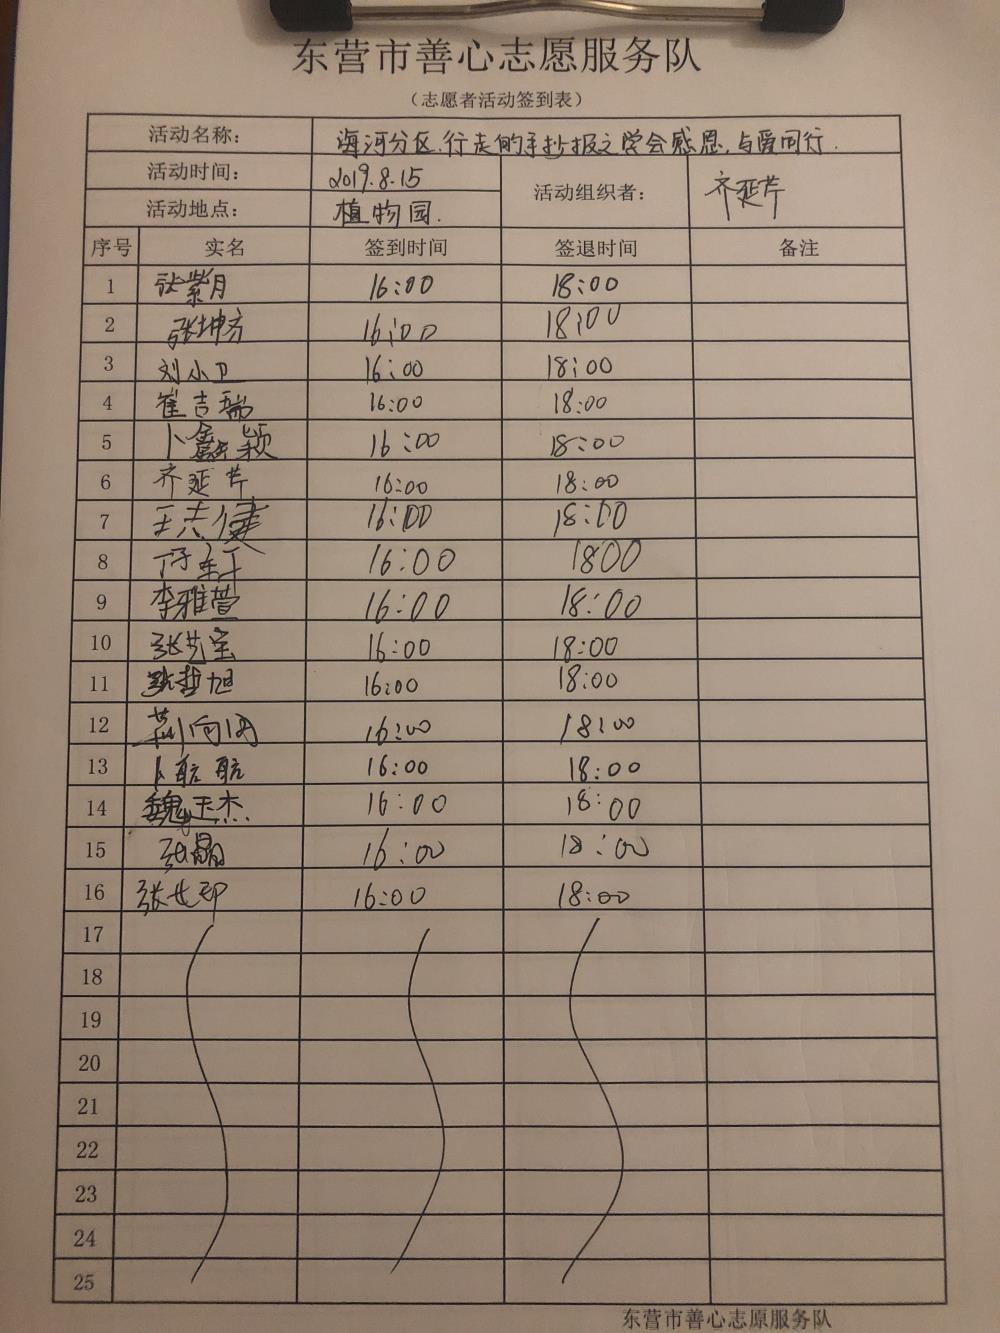 东营市善心志愿服务队
(志愿者活动签到表)
活动名称: 海河分区.行走的手抄报之学会感恩,与爱同行.
活动时间: 2019.8.15 活动组织者: 齐延芹
活动地点: 植物园.
序号 实名 签到时间 签退时间 备注
1 张紫月 16:00 18:00
2 张坤方 16:00 18:00
3 刘小卫 16:00 18:00
4 崔吉瑞 16:00 18:00
5 卜鑫颖 16:00 18:00
6 齐延芹 16:00 18:00
7 王志健 16:00 18:00
8 16:00 1800
9 李雅萱 16:00 18:00
10 张艺宝 16:00 18:00
11 哲旭 16:00 18:00
12 向 16:00 18:00
13 卜航航 16:00 18:00
14 魏玉杰 16:00 18:00
15 张晶 16:00 18:00
16 张 16:00 18:00
17
18
19
20
21
22
23
24
25
东营市善心志原服务队